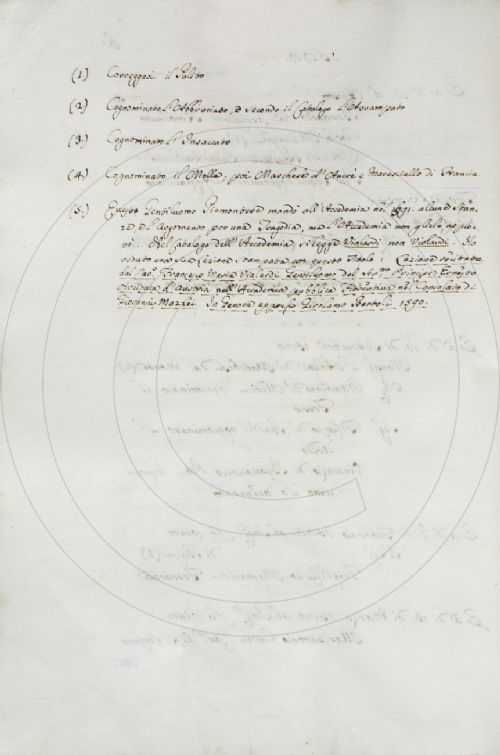 (1) Correggasi il Pulito
(2) Cognominato l'Abbruciato, o secondo il Catalogo l'Avvampato
(3) Cognominato l'Insaccato
(4) Cognominato il Molle, poi Marchese d'Ancre e Maresciallo di Francia
(5) Questo Gentiluomo Piemontese mandò all'Accademia nel 1591. alcune Stan-
ze, e l'Argomento per una Tragedia, ma l'Accademia non gliele appro-
vò... Nel Catalogo dell'Accademia si legge Vialardi non Violardi. Ho
veduto una sua Lezione stampata con questo titolo: Lezione recitata
dal Cav. Francesco Maria Vialardi Gentiluomo del Principe Ernesto
Arciduca d'Austria nell'Accademia pubblica Fiorentina nel Consolato di
Giovanni Mazzei. In Genova appresso Girolamo Bartoli 1590.